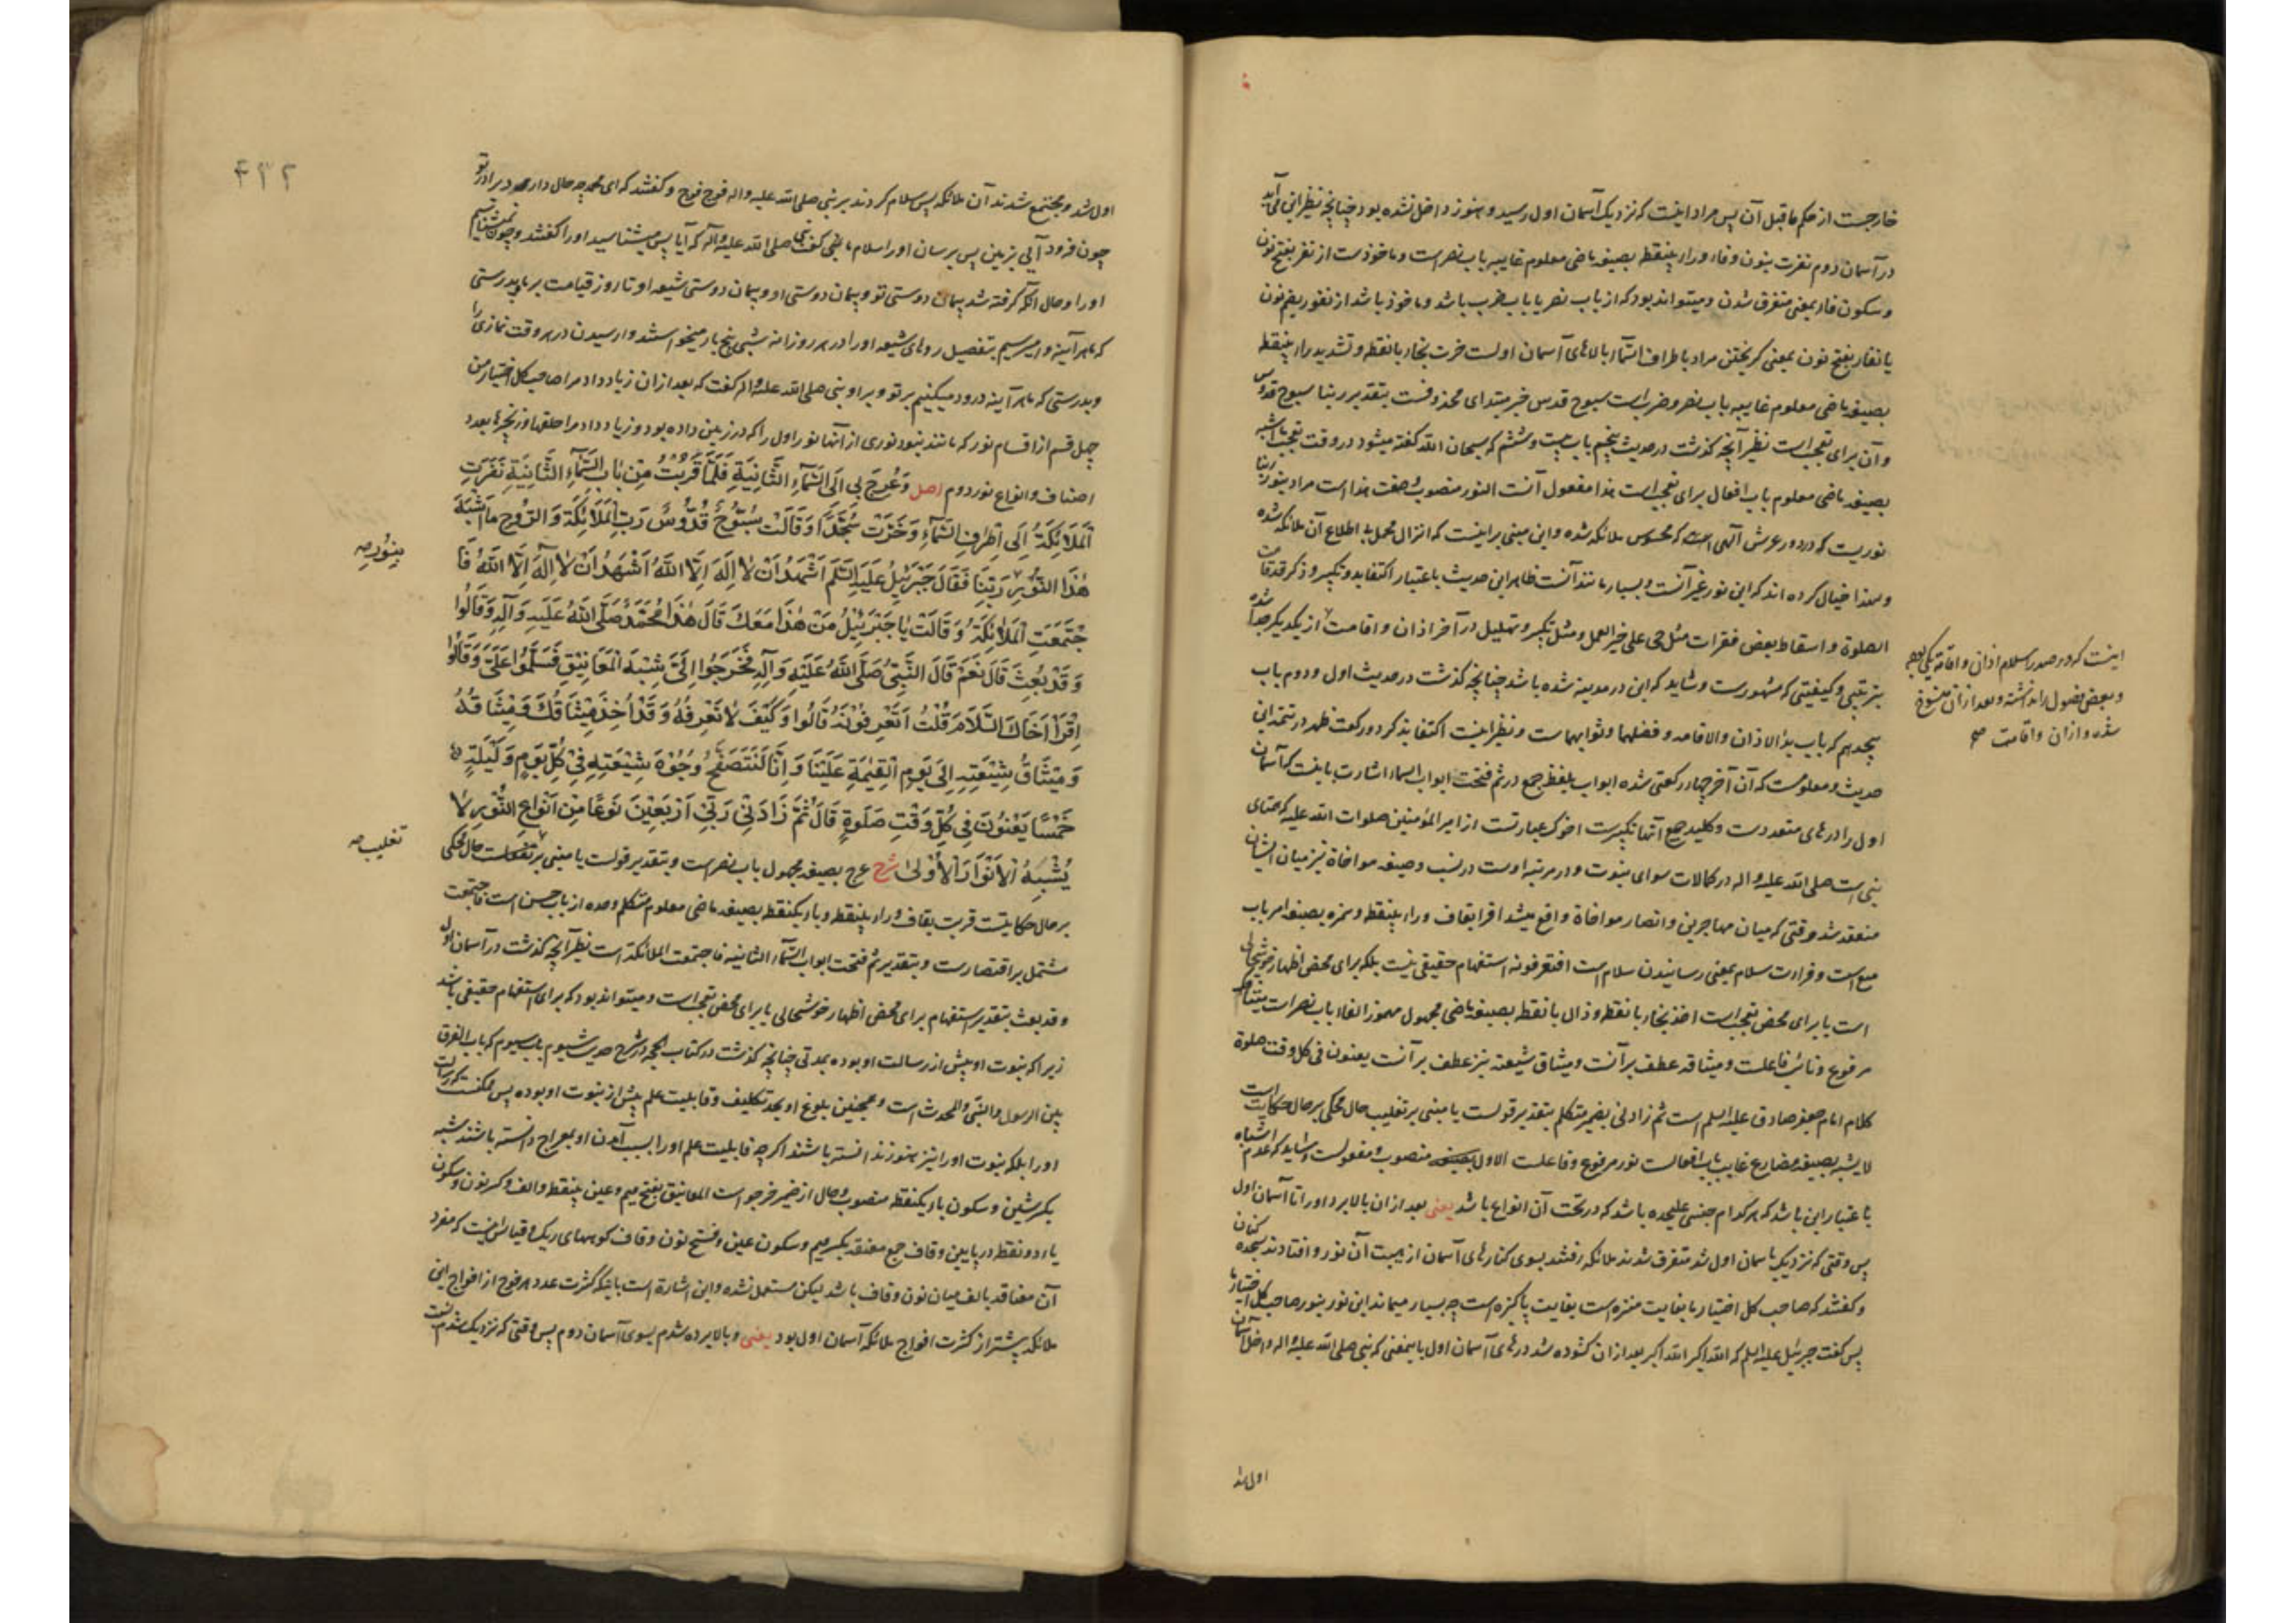 خارجست از حکم ماقبل آن پس مراد اینست که نزدیک آسمان اول رسید و هنوز داخل نشده بود چنانچه نظیر این می آید
در آسمان دوم نفرت بنون و فاء و راء بینقطه بصیغه ماضی معلوم غایبه باب نصر است و ماخوذست از نفر بفتح نون
و سکون فاء بمعنی متفرق شدن و میتواند بود که از باب نصر یا باب ضرب باشد و ماخوذ باشد از نفور بضم نون
یا نفار بفتح نون بمعنی گریختن مراد باطراف السماء بالاهای آسمان اولست خرت بخاء بانقطه و تشدید راء بینقطه
بصیغه ماضی معلوم غایبه باب نصر و ضرب است سبوح قدس خبر مبتدای محذوفست بتقدیر ربنا سبوح قدوس
و آن برای تعجب است نظیر آنچه گذشت در حدیث پنجم باب بیست و ششم که سبحان الله گفته میشود در وقت تعجب ما اشبه
بصیغه ماضی معلوم باب افعال برای تعجب است هذا مفعول آنست النور منصوب و صفت هذا است مراد بنور ربنا
نوریست که در دور عرش آلهی است که محسوس ملائکه شده و این مبنی بر اینست که انزال محمل به اطلاع آن ملائکه شده
و لهذا خیال کرده اند که این نور غیر آنست و بسیار مانند آنست ظاهر این حدیث باعتبار اکتفا بدو تکبیر و ذکر قد قامت
الصلوة و اسقاط بعض فقرات مثل حی علی خیر العمل و مثل تکبیر و تهلیل در آخر اذان و اقامت از یکدیگر جدا شده
بترتیبی و کیفیتی که مشهورست و شاید که این در مدینه شده باشد چنانچه گذشت در حدیث اول و دوم باب
هیجدهم که باب بدء الاذان والاقامه و فضلهما و ثوابهماست و نظیر اینست اکتفا بذکر دو رکعت ظهر در تتمه این
حدیث و معلومست که آن آخر چهار رکعتی شده ابواب بلفظ جمع در ثم فتحت ابواب السماء اشارت باینست که آسمان
اول را درهای متعددست و کلید جمیع آنها تکبیرست اخوک عبارتست از امیر المؤمنین صلوات الله علیه که همتای
نبی است صلی الله علیه و اله در کمالات سوای نبوت و در مرتبه اوست در نسب و صیغه مواخاة نیز میان ایشان
منعقد شد وقتی که میان مهاجرین و انصار مواخاة واقع میشد اقرا بقاف و راء بینقطه و همزه بصیغه امر باب
منع است و قراءت سلام بمعنی رسانیدن سلام است افتعرفونه استفهام حقیقی نیست بلکه برای محض اظهار خوشحالی
است یا برای محض تعجب است اخذ بخاء بانقطه و ذال بانقطه بصیغه ماضی مجهول مهموز الفاء باب نصر است میثاقک
مرفوع و نائب فاعلست و میثاقه عطف بر آنست و میثاق شیعته نیز عطف بر آنست یعنون فی کل وقت صلوة
کلام امام جعفر صادق علیه السلم است ثم زادنی بضمیر متکلم بتقدیر قولست یا مبنی بر تغلیب حال محکی بر حال حکایت است
لا یشبه بصیغه مضارع غایب باب افعالست نور مرفوع و فاعلست الاول منصوب و مفعولست و شاید که عدم اشتباه
باعتبار این باشد که هر کدام جنسی علیحده باشد که در تحت آن انواع باشد یعنی بعد از ان بالا برد او را تا آسمان اول
پس وقتی که نزدیک باسمان اول شد متفرق شدند ملائکه رفتند بسوی کنارهای آسمان از هیبت آن نور و افتادند سجده کنان
و گفتند که صاحب کل اختیار ما بغایت منزه است بغایت پاکیزه است چه بسیار میماند این نور بنور صاحب کل اختیار ما
پس گفت جبرئیل علیه السلم که الله اکبر الله اکبر بعد از ان گشوده شد درهای آسمان اول باینمعنی که نبی صلی الله علیه و اله داخل آسمان
اول شد
اینست که در صدر اسلام اذان و اقامة یکی بوده
و بعض فصول را نداشته و بعد از ان منسوخ
شده و اذان و اقامت صح
۴۳۲
اول شد و مجتمع شدند آن ملائکه پس سلام کردند بر نبی صلی الله علیه و اله فوج فوج و گفتند که ای محمد چه حال دارد برادر تو
چون فرود آیی بزمین پس برسان او را سلام ما نبی گفت صلی الله علیه و آله که آیا پس میشناسید او را گفتند و چون نمیشناسیم
او را و حال آنکه گرفته شد پیمان دوستی تو و پیمان دوستی او و پیمان دوستی شیعه او تا روز قیامت بر ما و بدرستی
که ما هر آینه وا میرسیم بتفصیل روهای شیعه او را در هر روز و شبی پنج بار میخواستند وا رسیدن در هر وقت نمازی را
و بدرستی که ما هر آینه درود میکنیم بر تو و بر او نبی صلی الله علیه و اله گفت که بعد از ان زیاد داد مرا صاحب کل اختیار من
چهل قسم از اقسام نور که مانند نبود نوری از آنها نور اول را که در زمین داده بود و زیاد داد مرا حلقها و زنجیرها بعدد
اصناف و انواع نور دوم اصل وَعُرِجَ بِي اِلَى السَّمَآءِ الثَّانِيَةِ فَلَمَّا قَرُبْتُ مِنْ بَابِ السَّمَآءِ الثَّانِيَةِ نَفَرَتِ
الْمَلَائِكَةُ اِلَى اَطْرَافِ السَّمَآءِ وَخَرَّتْ سُجَّدًا وَقَالَتْ سُبُّوحٌ قُدُّوسٌ رَبُّ الْمَلَائِكَةِ وَالرُّوحِ مَا اَشْبَهَ
هٰذَا النُّورَ رَبِّنَا فَقَالَ جَبْرَئِيلُ عَلَيْهِ السَّلَم اَشْهَدُ اَنْ لَا اِلٰهَ اِلَّا اللّٰهُ اَشْهَدُ اَنْ لَا اِلٰهَ اِلَّا اللّٰهُ فَا
جْتَمَعَتِ الْمَلَائِكَةُ وَقَالَتْ يَا جَبْرَئِيلُ مَنْ هٰذَا مَعَكَ قَالَ هٰذَا مُحَمَّدٌ صَلَّى اللّٰهُ عَلَيْهِ وَآلِهِ وَقَالُوا
وَقَدْ بُعِثَ قَالَ نَعَمْ قَالَ النَّبِيُّ صَلَّى اللّٰهُ عَلَيْهِ وَآلِهِ فَخَرَجُوا اِلَيَّ شِبْهَ الْمَعَانِيقِ فَسَلَّمُوا عَلَيَّ وَقَالُوا
اِقْرَأْ اَخَاكَ السَّلَامَ قُلْتُ اَتَعْرِفُونَهُ قَالُوا وَكَيْفَ لَا نَعْرِفُهُ وَقَدْ اُخِذَ مِيثَاقُكَ وَمِيثَاقُهُ
وَمِيثَاقُ شِيعَتِهِ اِلَى يَوْمِ الْقِيٰمَةِ عَلَيْنَا وَاِنَّا لَنَتَصَفَّحُ وُجُوهَ شِيعَتِهِ فِي كُلِّ يَوْمٍ وَلَيْلَةٍ
خَمْسًا يَعْنُونَ فِي كُلِّ وَقْتِ صَلٰوةٍ قَالَ ثُمَّ زَادَنِي رَبِّي اَرْبَعِينَ نَوْعًا مِنْ اَنْوَاعِ النُّورِ لَا
يُشْبِهُ الْاَنْوَارَ الْاُولٰى شرح عرج بصیغه مجهول باب نصر است و بتقدیر قولست یا مبنی بر حال محکی
بر حال حکایتست قربت بقاف و راء بینقطه و باء یکنقطه بصیغه ماضی معلوم متکلم وحده از باب حسن است فاجتمعت
مشتمل بر اقتصارست و بتقدیر ثم فتحت ابواب السماء الثانیه فاجتمعت الملائکة است نظیر آنچه گذشت در آسمان اول
و قد بعث بتقدیر استفهام برای محض اظهار خوشحالی یا برای محض تعجب است و میتواند بود که برای استفهام حقیقی باشد
زیرا که نبوت او پیش از رسالت او بوده بمدتی چنانچه گذشت در کتاب الحجه در شرح حدیث سیوم باب سیوم که باب الفرق
بین الرسول والنبی والمحدث است و همچنین بلوغ او بحد تکلیف و قابلیت علم پیش از نبوت او بوده پس ممکنست که رسالت
او را بلکه نبوت او را نیز هنوز ندانسته باشند اگر چه قابلیت علم او را بسبب آمدن او بمعراج دانسته باشند شبه
بکسر شین و سکون باء یکنقطه منصوب و حال از ضمیر خرجو است المعانیق بفتح میم و عین بینقطه و الف و کسر نون و سکون
یاء دو نقطه در پایین و قاف جمع معنقه بکسر میم و سکون عین و فتح نون و قاف کوههای ریک و قیاس اینست که مفرد
آن معناقه بالف میان نون و قاف باشد لیکن مستعمل نشده و این اشارة است باینکه کثرت عدد هر فوج از افواج این
ملائکه بیشتر از کثرت افواج ملائکه آسمان اول بود یعنی و بالا برده شدم بسوی آسمان دوم پس وقتی که نزدیک شدم
بنور صح
تغلیب صح